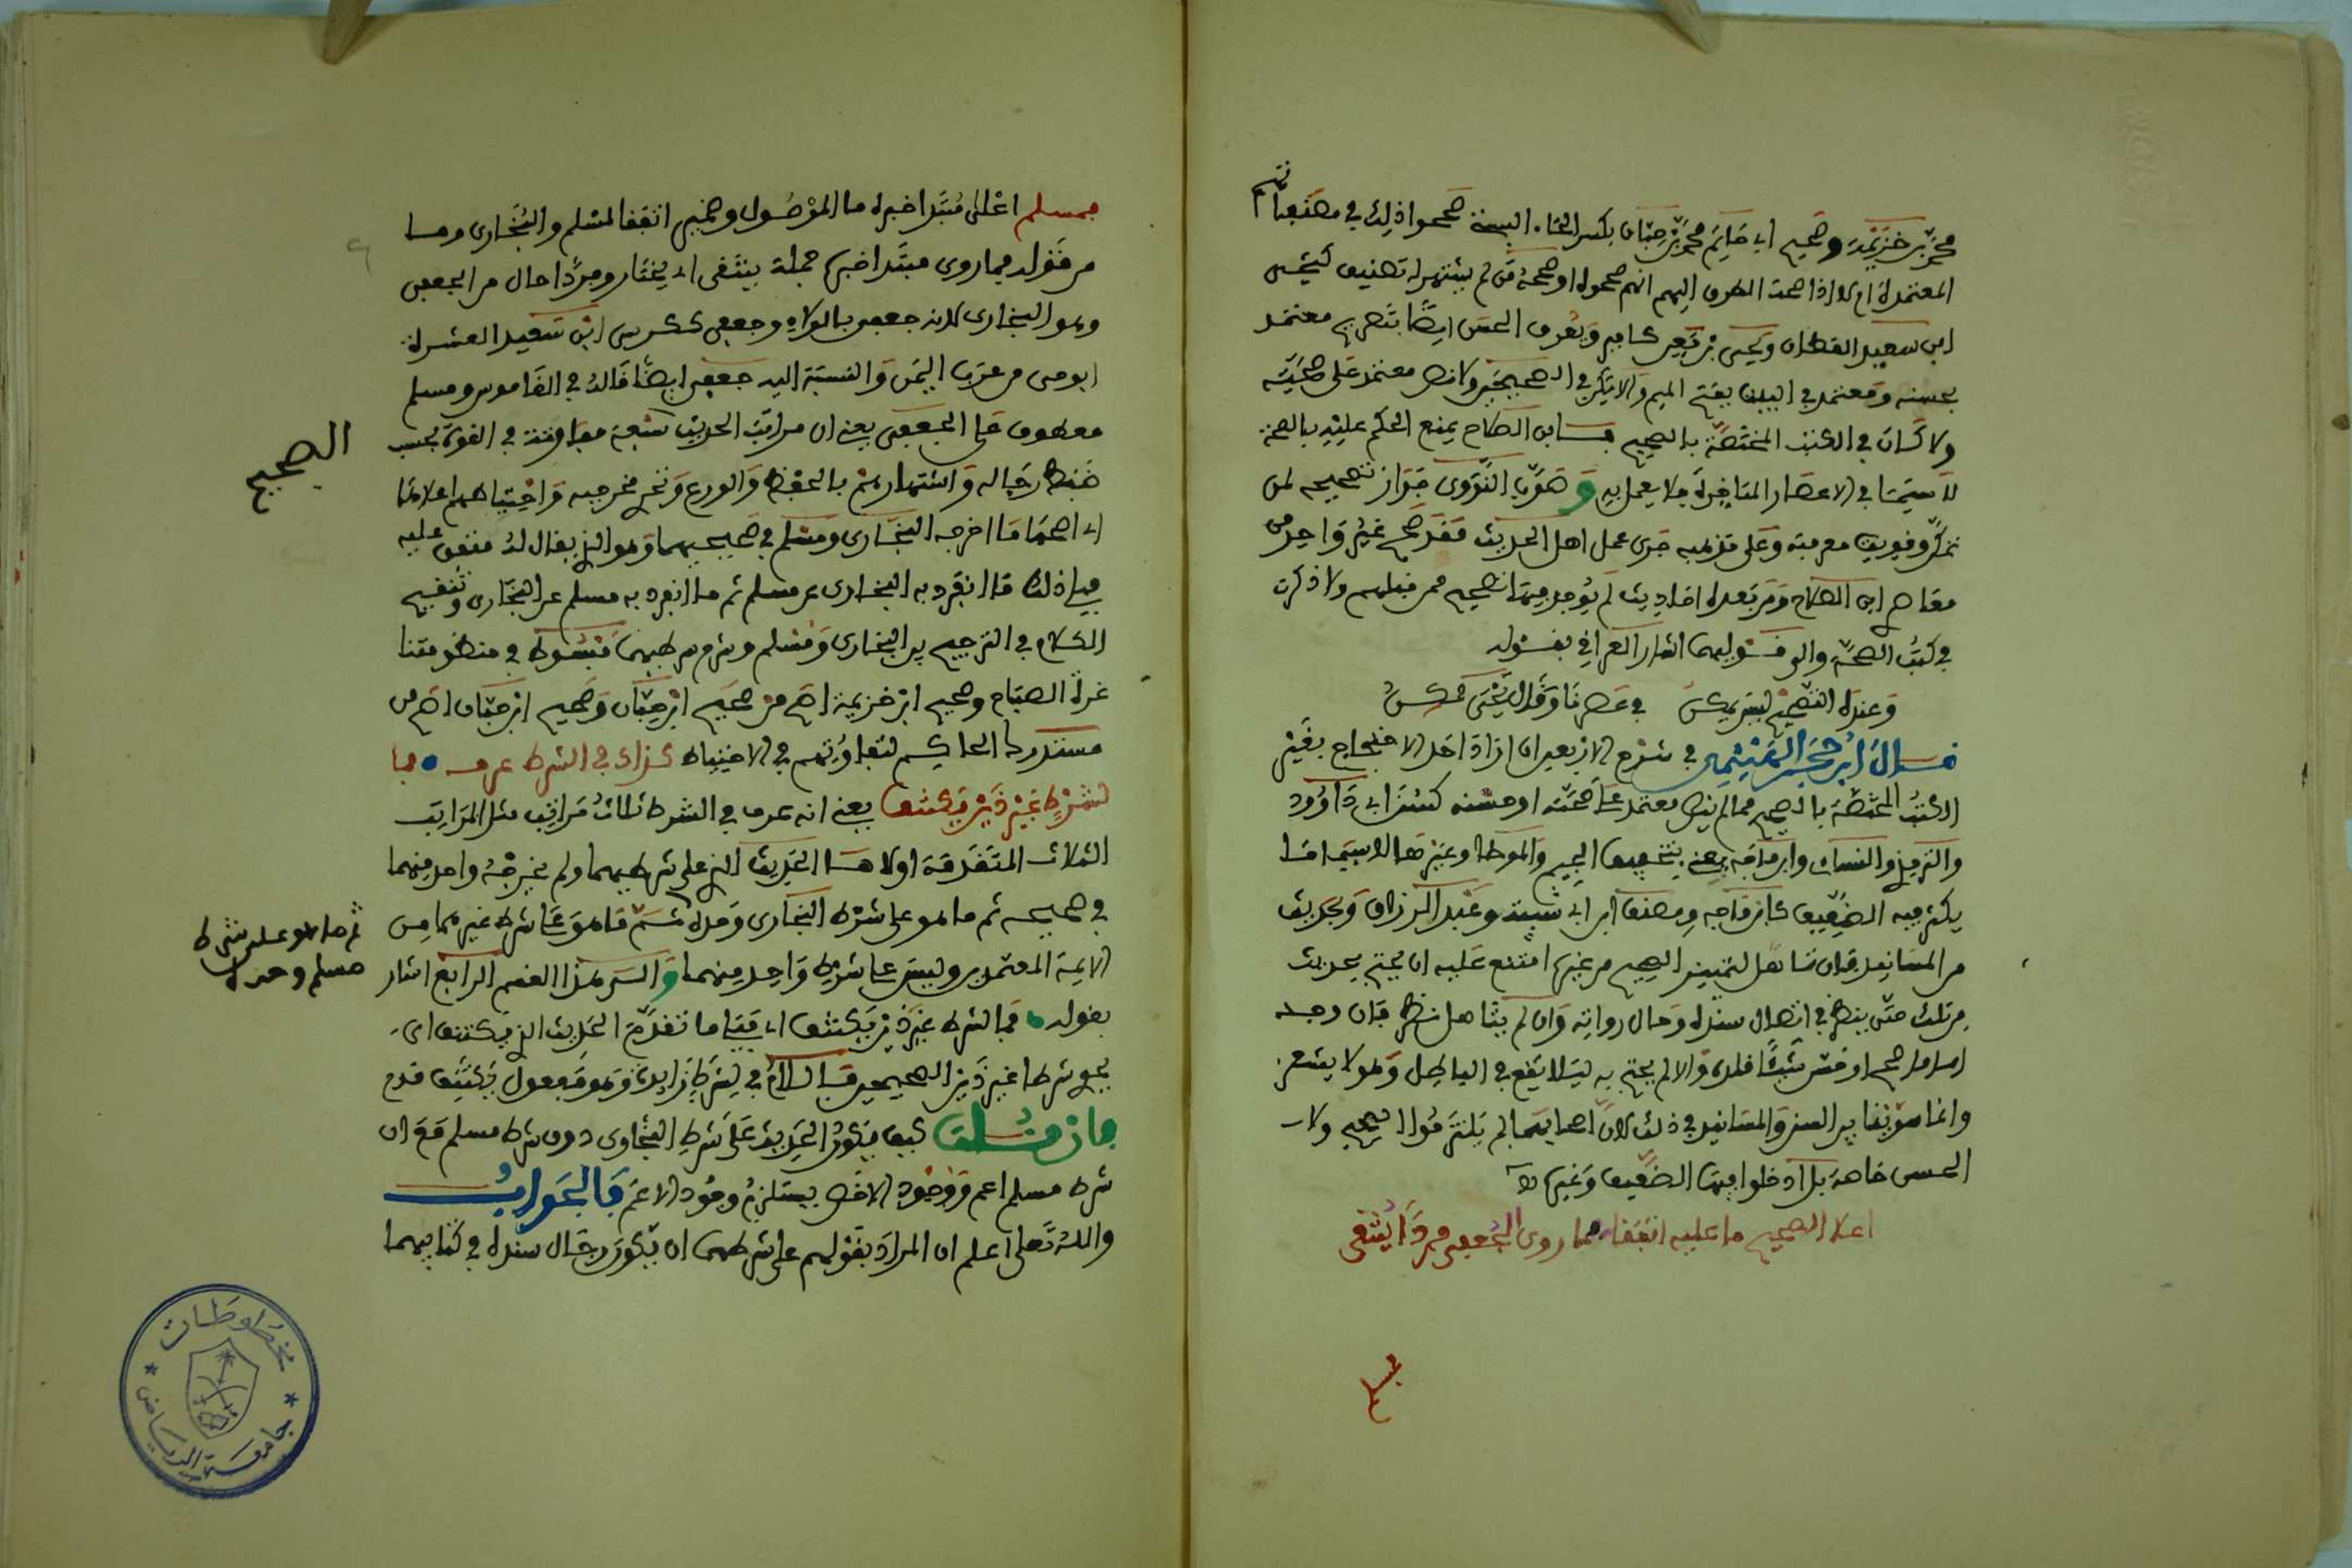 محمد بن خزيمة وصحيح ابى حاتم محمد بن حبان بكسر الحاء البستي صححوا ذلك في مصنفاتهم
المعتمدة ام لا اذا صحت الطرق اليهم انهم صححوه او صححه من لم يشتهر له تصنيف كيحيى
ابن سعيد القطان ويحيى بن معين كما مر ويعرف الحسن ايضا بتصريح معتمد
بحسنه ومعتمد في البيت بفتح الميم والا يكن في الصحيحين ولا نص معتمد على صحته
ولا كان في الكتب المختصة بالصحيح فابن الصلاح يمنع الحكم عليه بالصحة
لا سيما في الاعصار المتاخرة فلا يعمل به وصوب النووي جواز تصحيحه لمن
تمكن وقويت معرفته وعلى مذهبه جرى عمل اهل الحديث فقد صحح غير واحد من
معاصري ابن الصلاح ومن بعده احاديث لم يوجد فيها تصحيح ممن قبلهم ولا ذكرت
في كتب الصحة والى قوليهما اشار العراقي بقوله
وعنده التصحيح ليس يمكن في عصرنا وقال يحيى ممكن
قال ابن حجر الهيثمي في شرح الاربعين ان اراد احد الاحتجاج بغير
الكتب المختصة بالصحيح مما لم ينص معتمد على صحته او حسنه كسنن ابى داوود
والترمذي والنساي وابن ماجه يعني بتخفيف الجيم والموطا وغيرها لا سيما ما
يكثر فيه الضعيف كابن ماجه ومصنف ابن ابى شيبة وعبد الرزاق وبحديث
من المسانيد فان تاهل لتمييز الصحيح من غيره امتنع عليه ان يحتج بحديث
من ذلك حتى ينظر في اتصال سنده وحال رواته وان لم يتاهل نظر فان وجد
اماما صحح او حسن شيئا قلده والا لم يحتج به ليلا يقع في الباطل وهو لا يشعر
وانما سوينا بين السنن والمسانيد في ذلك لان اصحابها لم يلتزموا الصحيح ولا
الحسن خاصة بل ادخلوا فيها الضعيف وغيره اهـ
اعلا الصحيح ما عليه اتفقا فما روى الجعفي فردا ينتقى
فمسلم
فمسلم اعلى مبتدا خبره ما الموصول وضمير اتفقا لمسلم والبخارى وما
من قوله فما روى مبتدا خبره جملة ينتقى اى يختار وفردا حال من الجعفى
وهو البخارى لانه جعفى بالولاء وجعفى ككرسى ابن سعيد العشيرة
ابو حى من عرب اليمن والنسبة اليه جعفى ايضا قاله في القاموس ومسلم
معطوف على الجعفى يعنى ان مراتب الحديث الصحيح متفاوتة في القوة بحسب
ضبط رجاله واشتهارهم بالحفظ والورع وتحرى مخرجيه واحتياطهم اعلاها
اى اصحها ما اخرجه البخارى ومسلم في صحيحيهما وهو الذى يقال له متفق عليه
ويلى ذلك ما انفرد به البخارى عن مسلم ثم ما انفرد به مسلم عن البخارى وتنقيح
الكلام في الترجيح بين البخارى ومسلم وشرح شرطيهما مبسوط في منظومتنا
غرة الصباح وصحيح ابن خزيمة اصح من صحيح ابن حبان وصحيح ابن حبان اصح من
مستدرك الحاكم لتفاوتهم في الاحتياط كذاك في الشرط عرف فما
لشرط غير ذين يكتنف يعنى انه عرف في الشرط ثلاث مراتب مثل المراتب
الثلاث المتقدمة اولاها الحديث الذى على شرطيهما ولم يخرجه واحد منهما
في صحيحه ثم ما هو على شرط البخارى وحده ثم ما هو على شرط غيرهما من
ثم ما هو على شرط
مسلم وحده
الايمة المعتمدين وليس على شرط واحد منهما والى هذا القسم الرابع اشار
بقوله فما لشرط غير ذين يكتنف اى فيلى ما تقدم الحديث الذى يكتنف اى
يحوى شرطا غير ذين الصحيحين فاللام في لشرط زايدة وهو مفعول يكتنف قدم
فان قلت كيف يكون الحديث على شرط البخارى دون شرط مسلم مع ان
شرط مسلم اعم ووجود الاخص يستلزم وجود الاعم فالجواب
والله تعالى اعلم ان المراد بقولهم على شرطهما ان يكون رجال سنده في كتابيهما
الصحيح
مخطوطات
جامعة الرياض